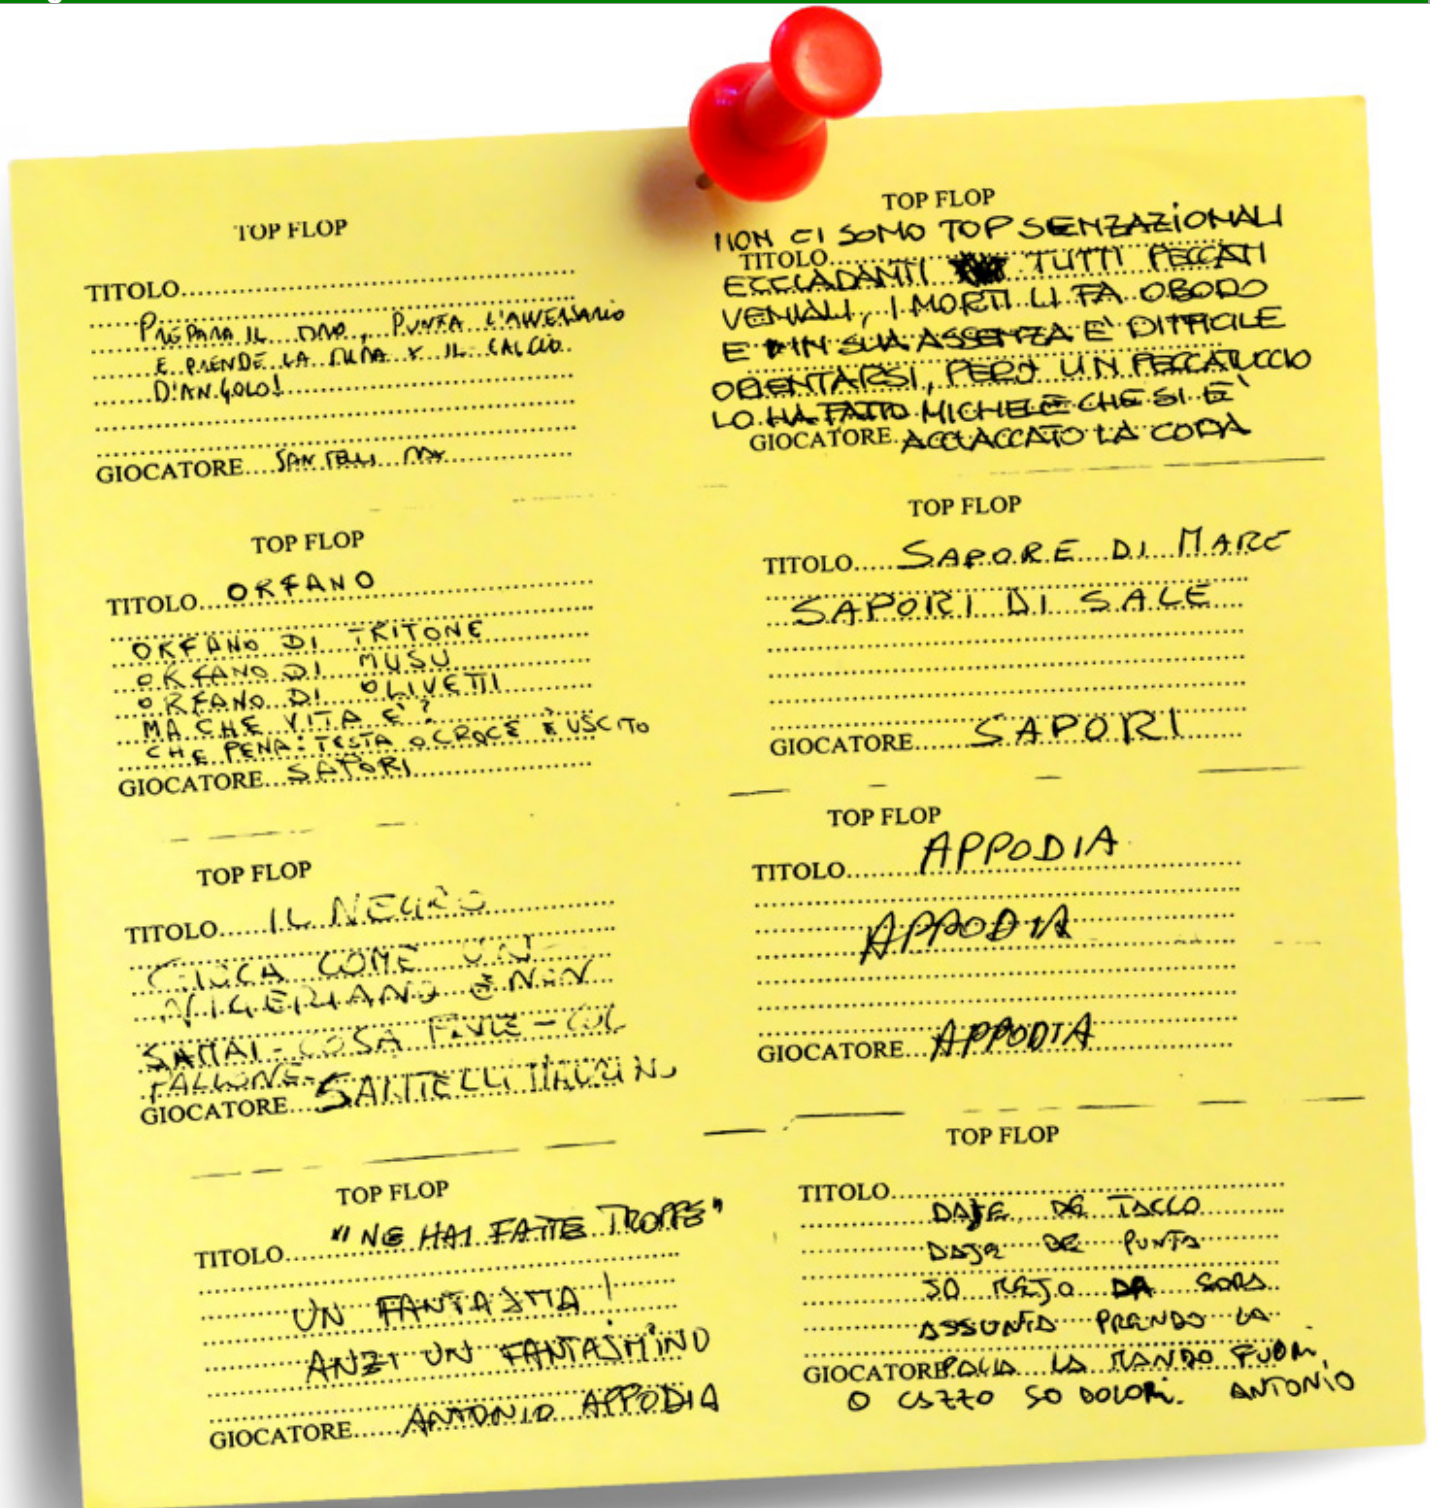 TOP FLOP
TITOLO
PREPARA IL TIRO, PUNTA L'AVVERSARIO
E PRENDE LA MIRA X IL CALCIO
D'ANGOLO!
GIOCATORE SANTELLI
TOP FLOP
TITOLO ORFANO
ORFANO DI TRITONE
ORFANO DI MUSU
ORFANO DI OLIVETTI
MA CHE VITA E'?
CHE PENA: TESTA O CROCE È USCITO
GIOCATORE SAPORI
TOP FLOP
TITOLO IL NEGRO
GIOCA COME UN
NIGERIANO E NON
SA MAI - COSA FARE - COL
PALLONE
GIOCATORE SANTELLI
TOP FLOP
TITOLO "NE HAI FATTE TROPPE"
UN FANTASMA!
ANZI UN FANTASMINO
GIOCATORE ANTONIO APPODIA
TOP FLOP
NON CI SONO TOP SENZAZIONALI
TITOLO
ECCLADANTI TUTTI PECCATI
VENIALI, I MORTI LI FA OBODO
E IN SUA ASSENZA E' DIFFICILE
ORIENTARSI, PERO' UN PECCATUCCIO
LO HA FATTO MICHELE CHE SI E'
GIOCATORE ACCIACCATO LA CODA
TOP FLOP
TITOLO SAPORE DI MARE
SAPORI DI SALE
GIOCATORE SAPORI
TOP FLOP
TITOLO APPODIA
APPODIA
GIOCATORE APPODIA
TOP FLOP
TITOLO
DAJE DE TACCO
DAJE DE PUNTA
SO MEJO DA SORA
ASSUNTA PRENDO LA
GIOCATORE PALLA LA MANDO FUORI
O CAZZO SO DOLORI. ANTONIO